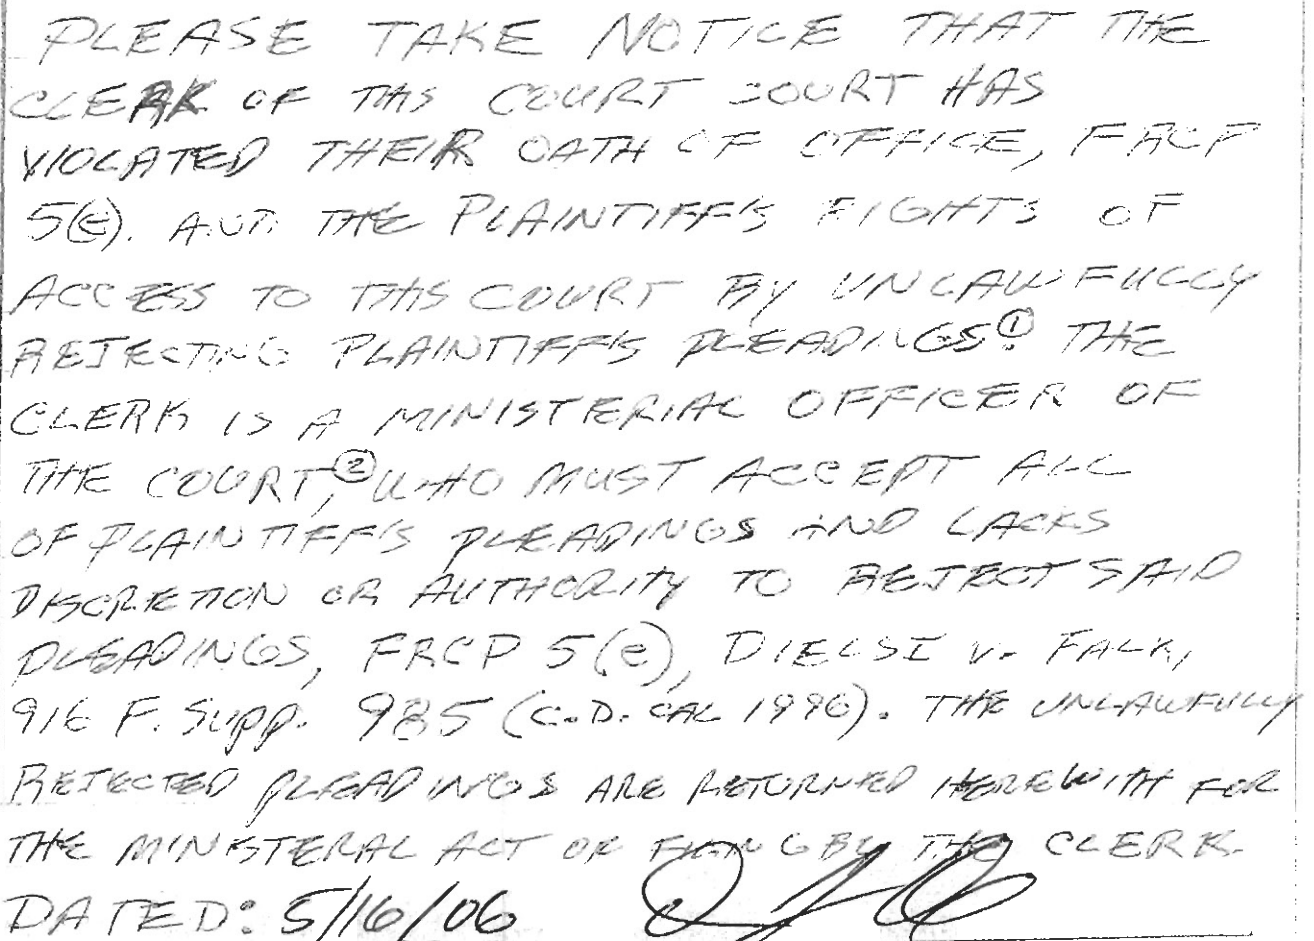 PLEASE TAKE NOTICE THAT THE
CLERK OF THIS COURT COURT HAS
VIOLATED THEIR OATH OF OFFICE, FRCP
5(e). AND THE PLAINTIFF'S RIGHTS OF
ACCESS TO THIS COURT BY UNLAWFULLY
REJECTING PLAINTIFF'S PLEADINGS①. THE
CLERK IS A MINISTERIAL OFFICER OF
THE COURT,② WHO MUST ACCEPT ALL
OF PLAINTIFF'S PLEADINGS AND LACKS
DISCRETION OR AUTHORITY TO REJECT SAID
PLEADINGS, FRCP 5(e), DIELSI v. FALK,
916 F. Supp. 985 (C.D. CAL 1996). THE UNLAWFULLY
REJECTED PLEADINGS ARE RETURNED HEREWITH FOR
THE MINISTERAL ACT OF FILING BY THE CLERK.
DATED: 5/16/06